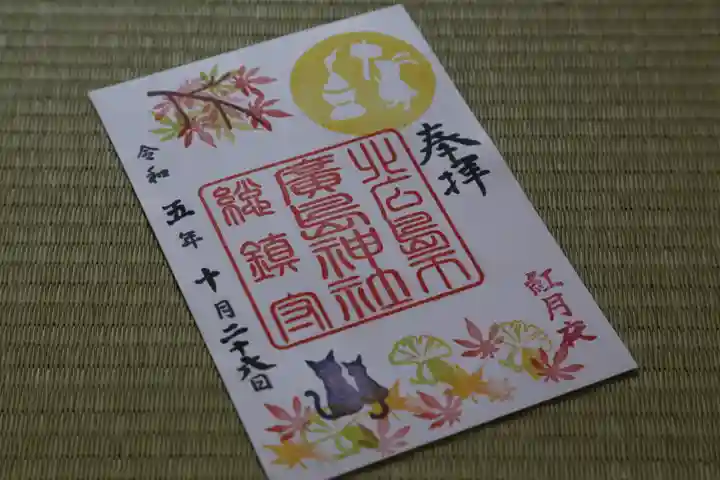 奉拝
北広島市
廣島神社
総鎮守
紅月夜
令和五年十月二十八日